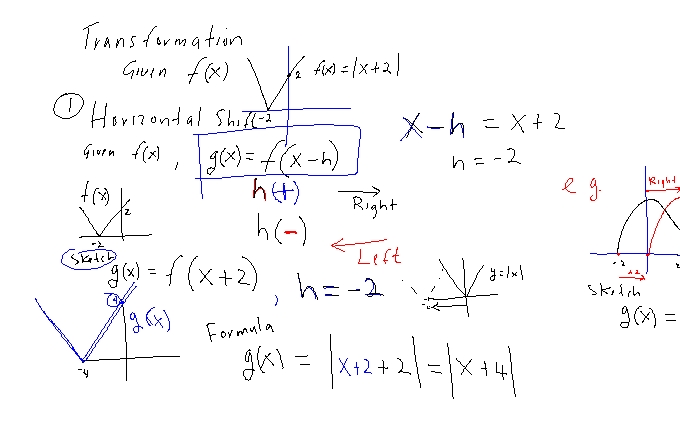 Transformation
Given f(x)
2 f(x) = |x+2|
-2
① Horizontal Shift
Given f(x), g(x) = f(x-h)
x-h = x+2
h = -2
h(+) Right
h(-) Left
f(x)
2
-2
Sketch
g(x) = f(x+2), h = -2
y=|x|
4
g(x)
-4
Formula
g(x) = |x+2+2| = |x+4|
e g.
Right
-2
+2
2
Sketch
g(x) =